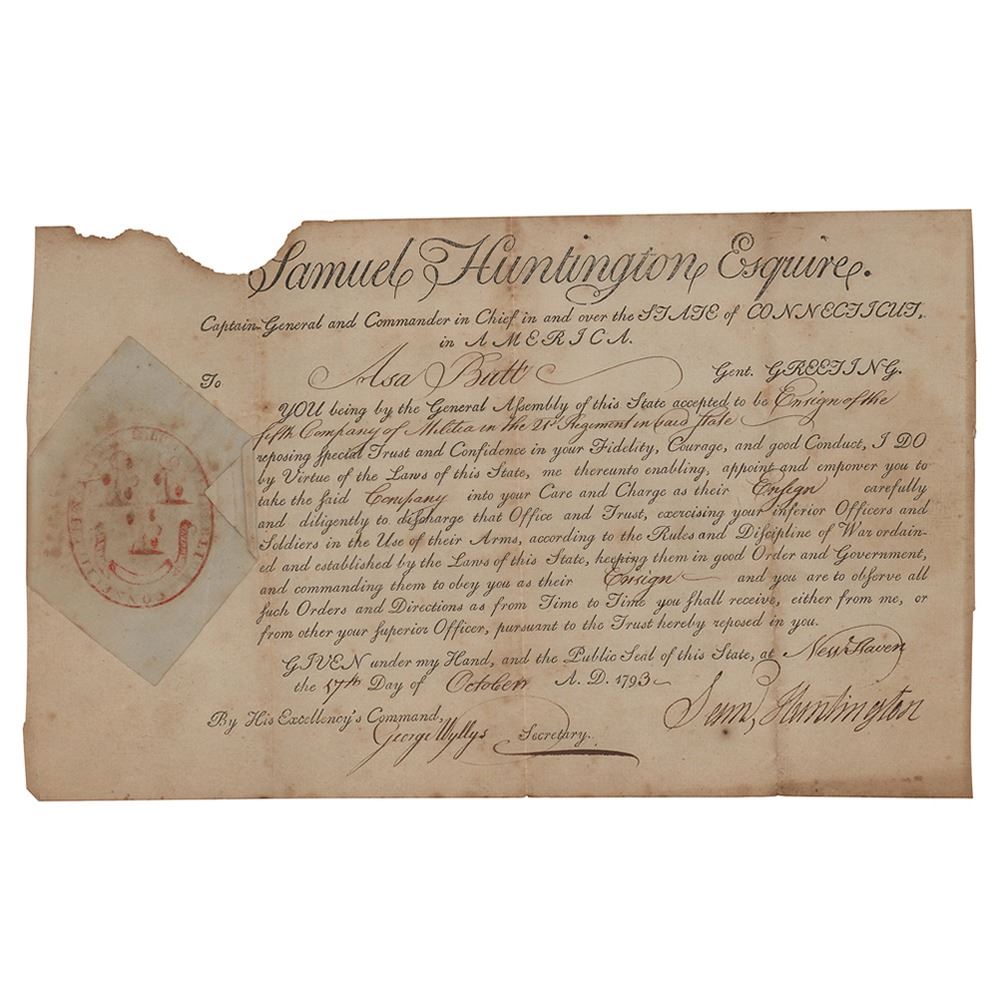 Samuel Huntington Esquire.
Captain-General and Commander in Chief in and over the STATE of CONNECTICUT,
in AMERICA.
To Asa Butt Gent. GREETING.
YOU being by the General Assembly of this State accepted to be Ensign of the
fifth Company of Militia in the 21st Regiment in said State
reposing special Trust and Confidence in your Fidelity, Courage, and good Conduct, I DO
by Virtue of the Laws of this State, me thereunto enabling, appoint and empower you to
take the said Company into your Care and Charge as their Ensign carefully
and diligently to discharge that Office and Trust, exercising your inferior Officers and
Soldiers in the Use of their Arms, according to the Rules and Discipline of War ordain-
ed and established by the Laws of this State, keeping them in good Order and Government,
and commanding them to obey you as their Ensign and you are to observe all
such Orders and Directions as from Time to Time you shall receive, either from me, or
from other your superior Officer, pursuant to the Trust hereby reposed in you.
GIVEN under my Hand, and the Public Seal of this State, at New Haven
the 17th Day of October A. D. 1793
Sam Huntington
By His Excellency's Command,
George Wyllys Secretary.